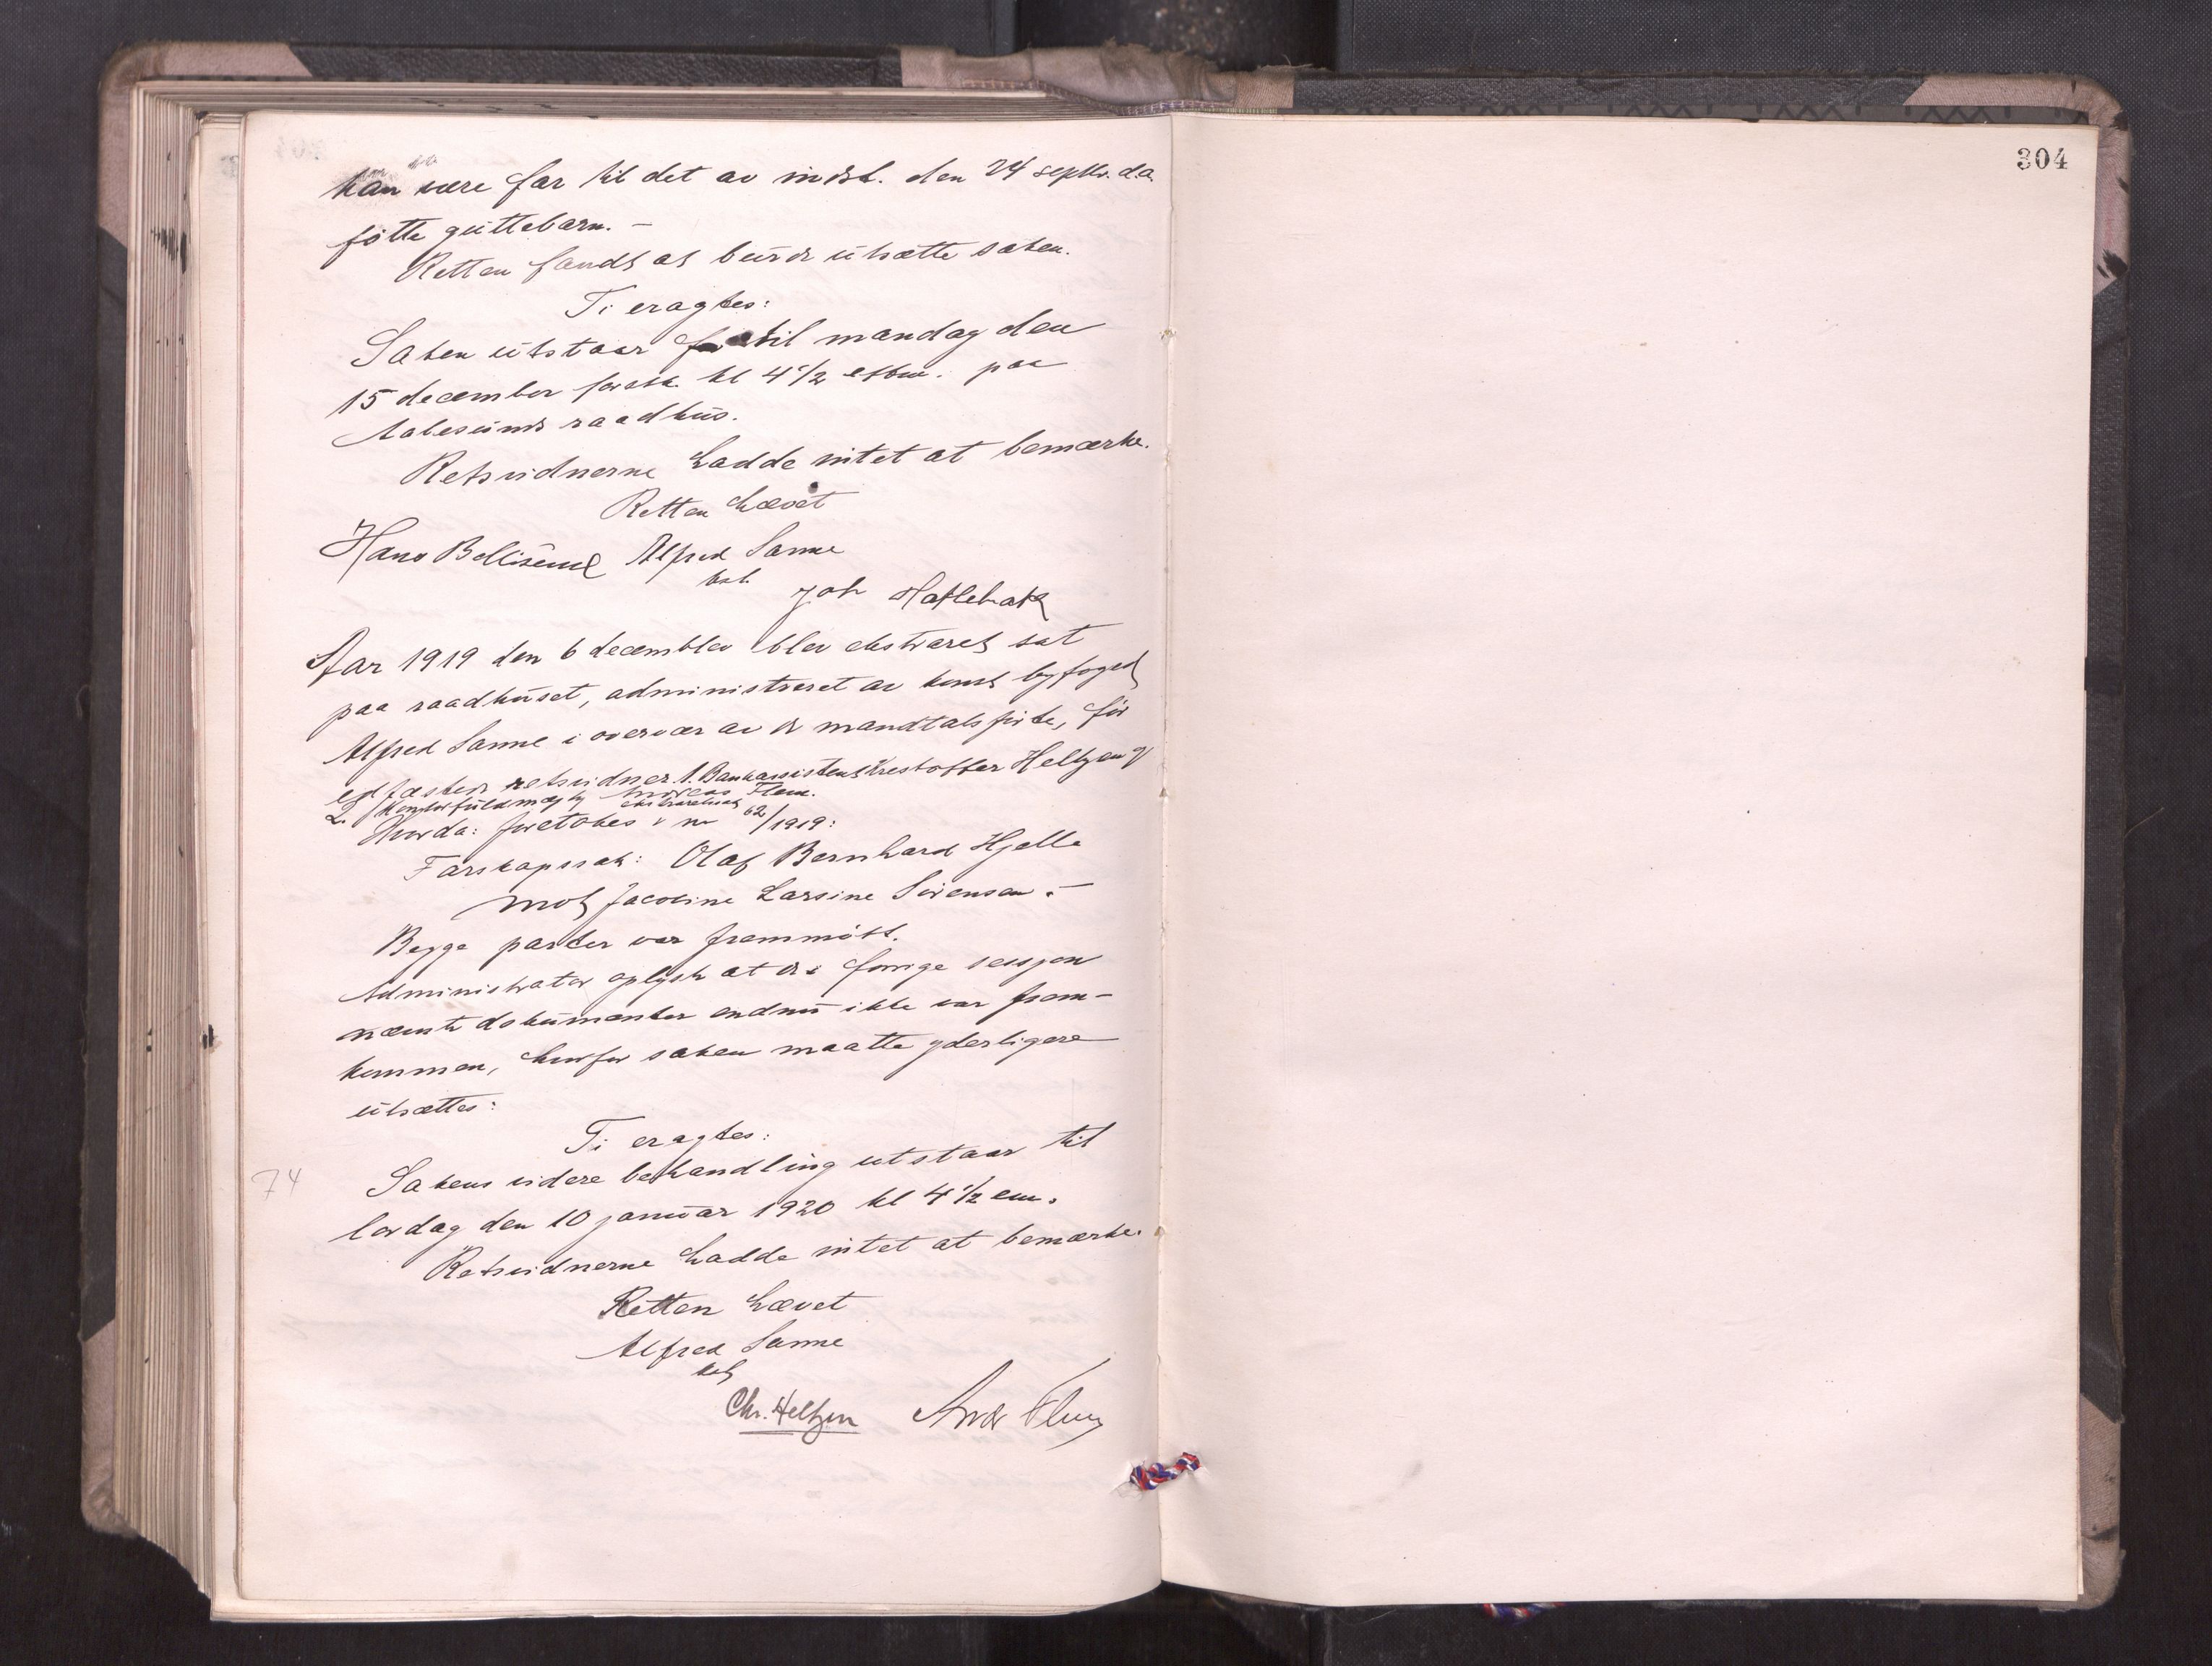 kan være far til det av indst. den 24 septbr. d.a.
føtte guttebarn. –
Retten fandt at burde utsætte saken.
Ti eragtes:
Saken utstaar til mandag den
15 december førstk. kl 4 1/2 eftm. paa
Aalesunds raadhus.
Retsvidnerne hadde intet at bemærke.
Retten hævet
Hans Alfred Sanne
kst.
Joh Hatlehak
Aar 1919 den 6 december blev ekstraret sat
paa raadhuset, administreret av konst byfoged
Alfred Sanne i overvær av de mandtalsførte, før
edfæstede retsvidner 1. Bankassistent Krestoffer Heltzen og
2. Kontorfuldmægtig Andreas Flem.
Hvorda: foretokes ekstraretssak nr 62/1919:
Farskapssak: Olaf Bernhard Hjelle
mot Jacobine Larsine Sørensen. –
Begge parter var frammøtt.
Administrator oplyste at de i forrige sessjon
nævnte dokumenter endnu ikke var fram-
kommen, hvorfor saken maatte yderligere
utsættes:
Ti eragtes:
74
Sakens videre behandling utstaar til
lørdag den 10 januar 1920 kl 4 1/2 em.
Retsvidnerne hadde intet at bemærke.
Retten hævet
Alfred Sanne
kst
Chr. Heltzen Andr Flem
304